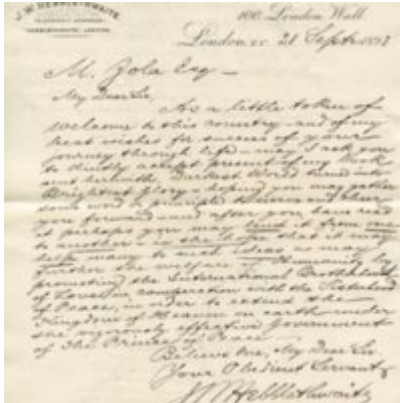 J. W. HEBBLETHWAITE
100, London Wall
London, E.C. 21 Sept. 1893
M. Zola Esq –
My Dear Sir,
As a little token of
welcome to this country – and of my
best wishes for success of your
journey through life – may I ask you
to kindly accept present of my book
sent herewith Darkest World turned into
Brightest Glory – hoping you may gather
some word or principle to
you forward – and after you have read
it perhaps you may lend it from one
to another – in the hope that it may
help many to such ideas as may
further the welfare of Humanity by
promoting the International Brotherhood
of Love in cooperation with the Sisterhood
of Peace, in order to extend the
Kingdom of Heaven on earth under
the vigorously effective Government
of The Prince of Peace
Believe me, My Dear Sir
Your Obedient Servant
J W Hebblethwaite